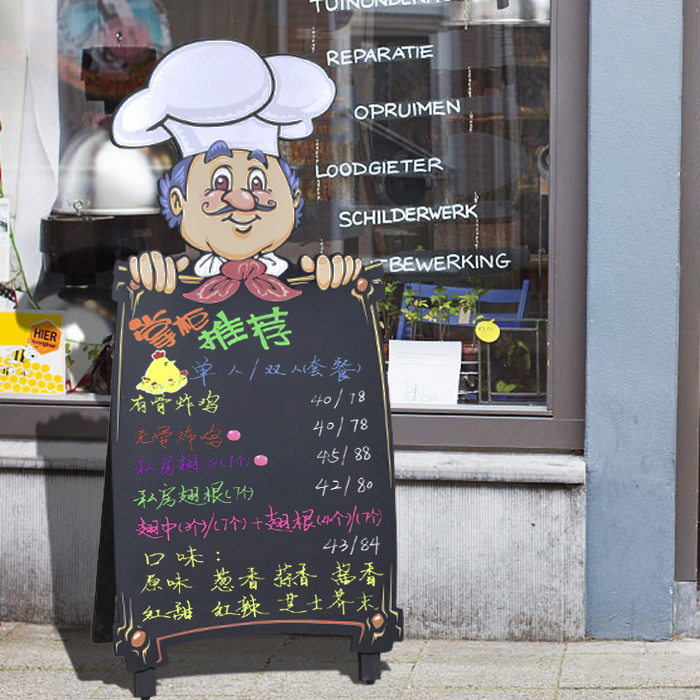 REPARATIE
OPRUIMEN
LOODGIETER
SCHILDERWERK
BEWERKING
HIER
掌柜推荐
单人/双人(套餐)
有骨炸鸡 40/78
无骨炸鸡 40/78
私房翅中(7个) 45/88
私房翅根(7个) 42/80
翅中(3个)/(7个)+翅根(4个)/(7个)
43/84
口味：
原味 葱香 蒜香 酱香
红甜 红辣 芝士芥末